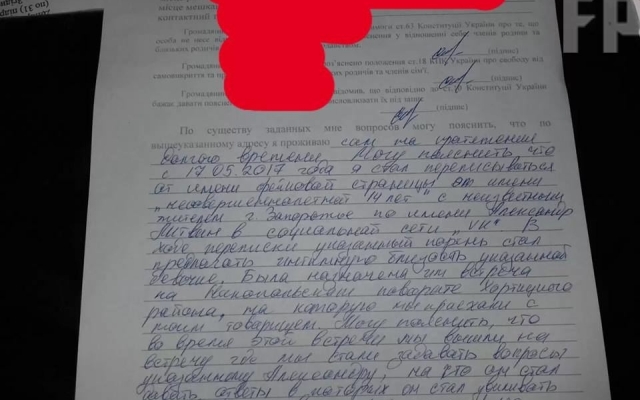 місце мешка
контактний
ст.63 Конституції України про те, що
(підпис)
положення ст.18 КПК України про свободу від
самовикриття та пр родичів та членів сім'ї.
(підпис)
що відповідно до ст. Конституції України
бажає давати висловлювати їх під запис
(підпис)
По существу заданных мне вопросов могу пояснить, что по
вышеуказанному адресу я проживаю сам на протяжении
долгого времени. Могу пояснить что
с 17.05.2017 года я стал переписываться
от имени фейковой страницы от имени
"несовершеннолетней 14 лет" с неизвестным
жителем г. Запорожье по имени Александр
Литвин в социальной сети "VK" В
ходе переписки указанный парень стал
предлагать интимную близость указанной
девочке. Была назначена им встреча
на Никопольском повороте Хортицкого
района, на которую мы приехали с
моим товарищем. Могу пояснить, что
во время этой встречи мы вышли на
встречу где мы стали задавать вопросы
указанному Александру, на что он стал
давать ответы в которых он стал
FP